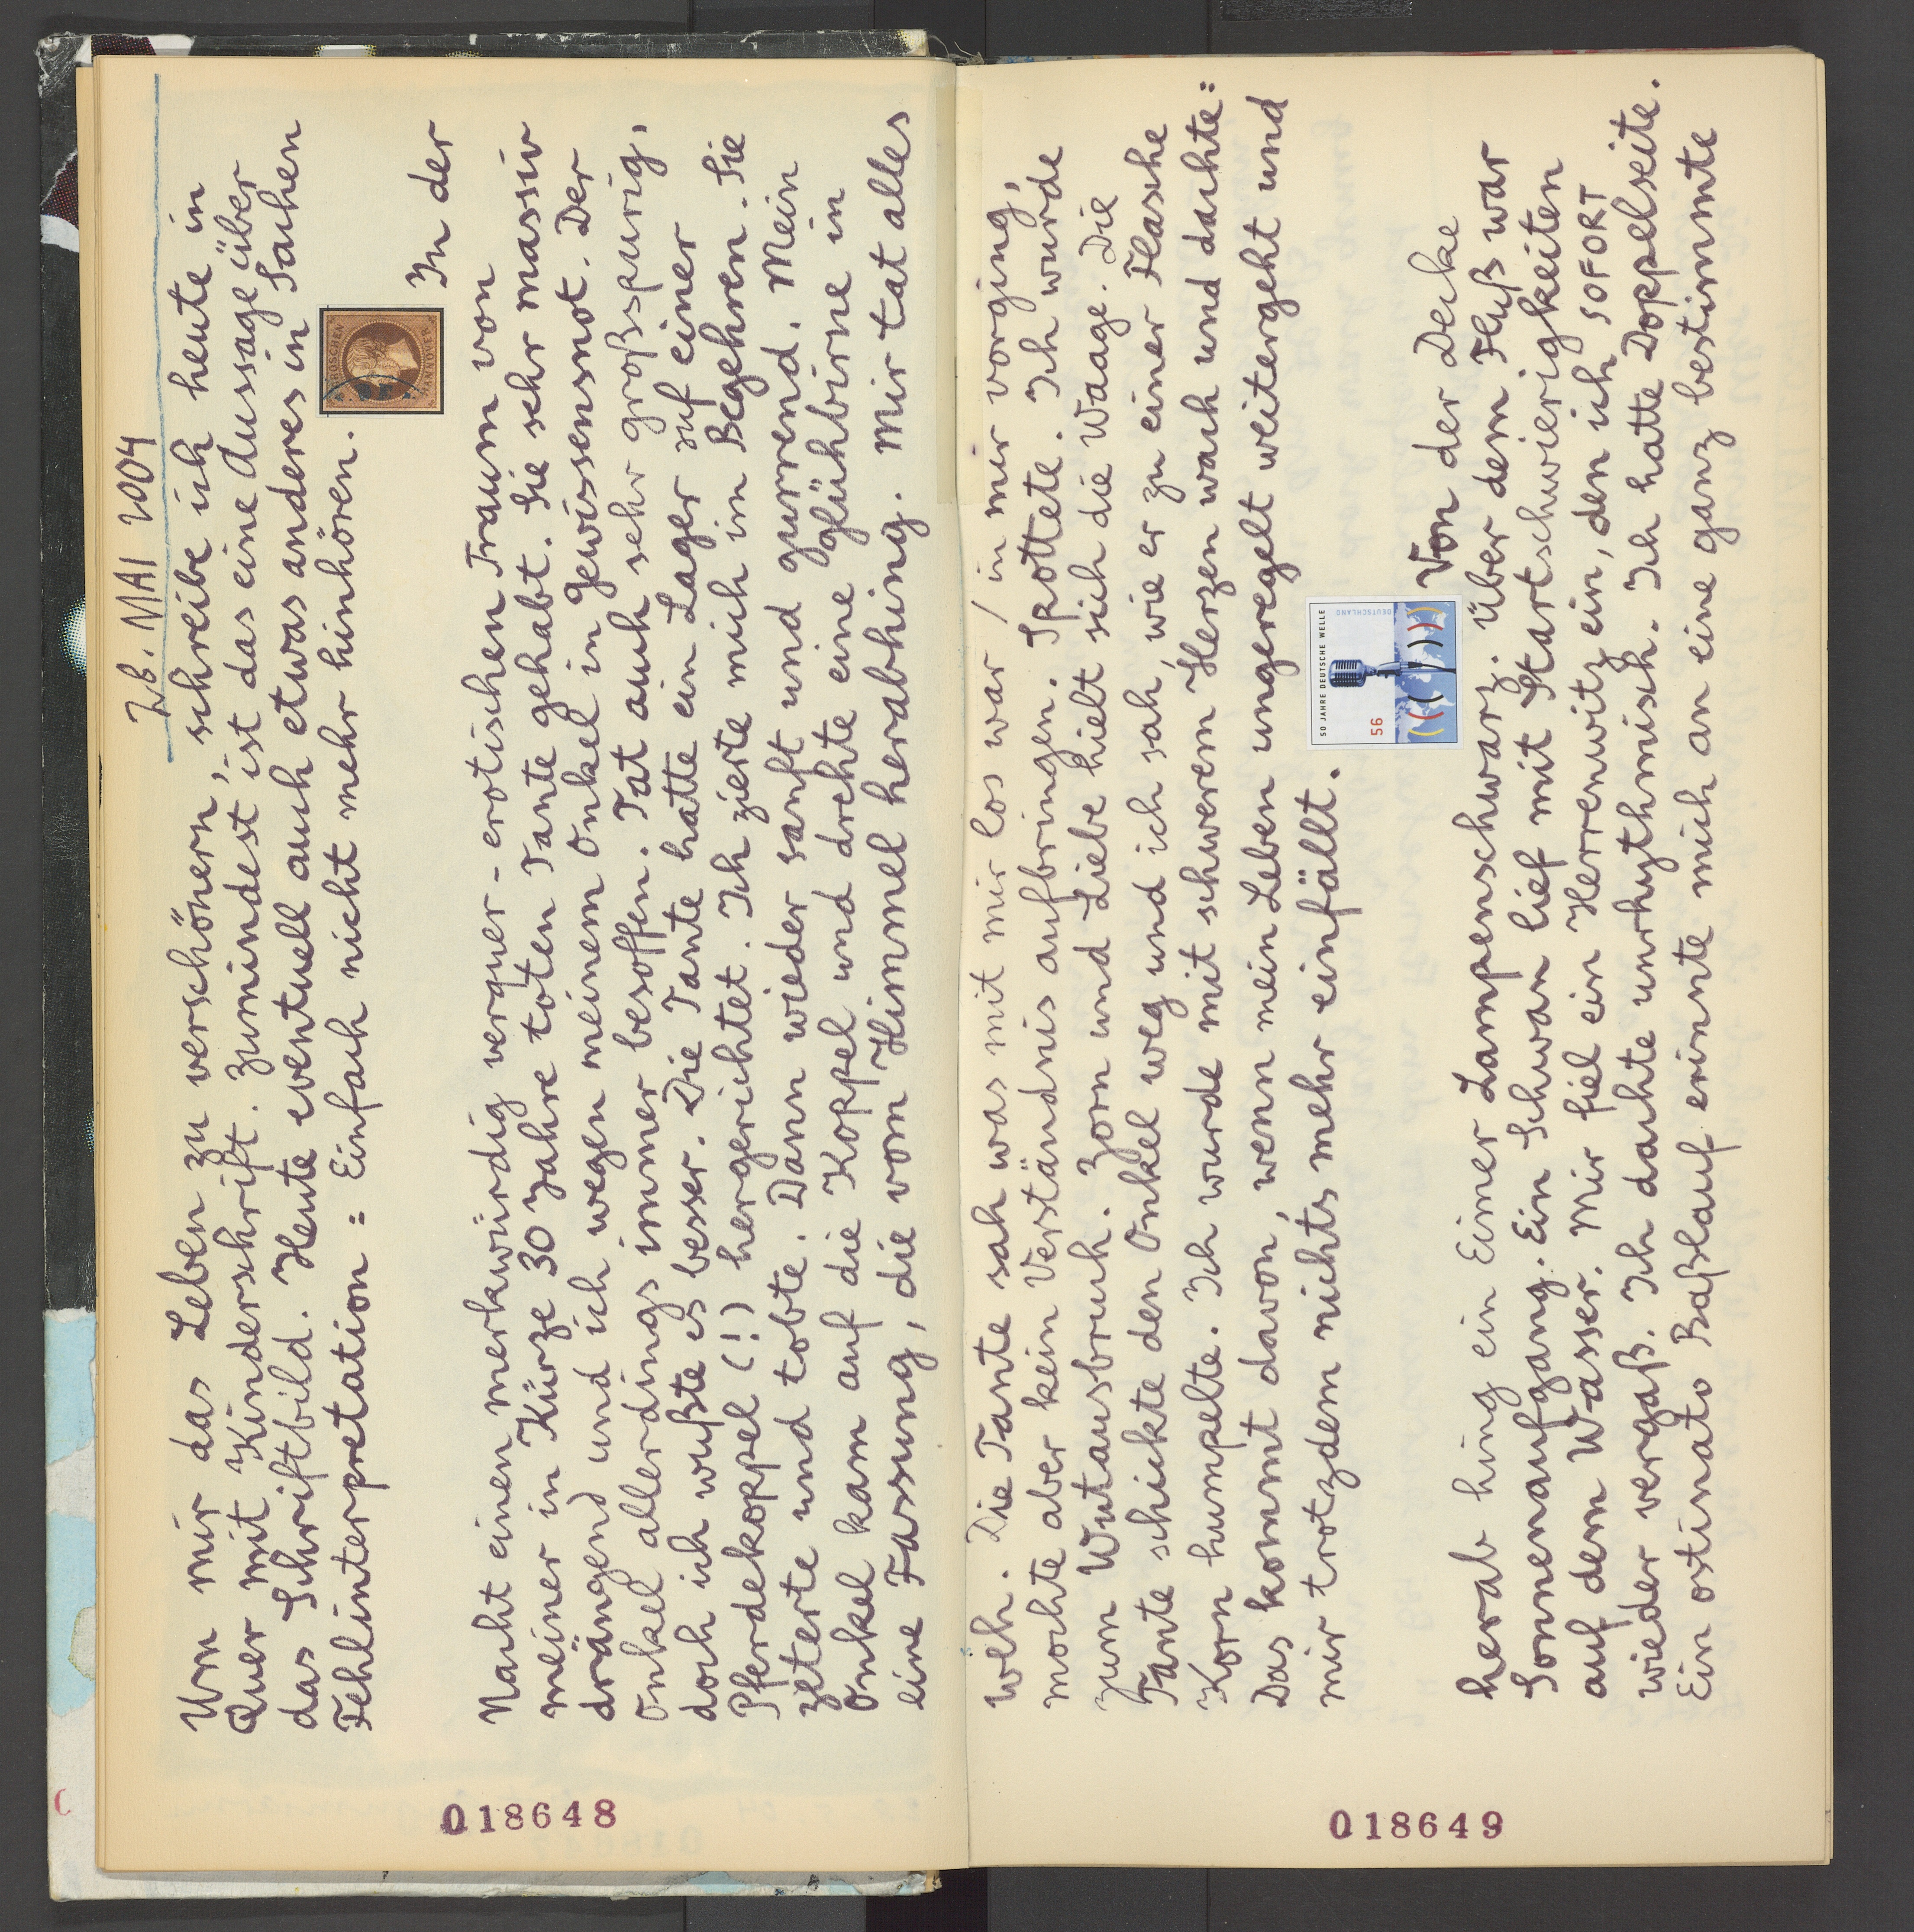 26. MAI 2004
Um mir das Leben zu verschönern, schreibe ich heute in
Quer mit Kinderschrift. Zumindest ist das eine Aussage über
das Schriftbild. Heute eventuell auch etwas anderes in Sachen
Fehlinterpretation = Einfach nicht mehr hinhören.
GROSCHEN
HANNOVER
In der
Nacht einen merkwürdig verquer-erotischen Traum von
meiner in Kürze 30 Jahre toten Tante gehabt. Sie sehr massiv
drängend und ich wegen meinem Onkel in Gewissensnot. Der
Onkel allerdings immer besoffen. Tat auch sehr großspurig,
doch ich wußte es besser. Die Tante hatte ein Lager auf einer
Pferdekoppel (!) hergerichtet. Ich zierte mich im Begehren. Sie
zeterte und tobte. Dann wieder sanft und gurrend. Mein
Onkel kam auf die Koppel und drehte eine Glühbirne in
eine Fassung, die vom Himmel herabhing. Mir tat alles
018648
weh. Die Tante sah was mit mir los war / in mir vorging,
mochte aber kein Verständnis aufbringen. Spottete. Ich wurde
zum Wutausbruch. Zorn und Liebe hielt sich die Waage. Die
Tante schickte den Onkel weg und ich sah, wie er zu einer Flasche
Korn humpelte. Ich wurde mit schwerem Herzen wach und dachte=
Das kommt davon, wenn mein Leben ungeregelt weitergeht und
mir trotzdem nichts mehr einfällt.
50 JAHRE DEUTSCHE WELLE
56
DEUTSCHLAND
Von der Decke
herab hing ein Eimer Lampenschwarz. Über dem Fluß war
Sonnenaufgang. Ein Schwan lief mit Startschwierigkeiten
auf dem Wasser. Mir fiel ein Herrenwitz ein, den ich SOFORT
wieder vergaß. Ich dachte unrhythmisch. Ich hatte Doppelseite.
Ein ostinato Baßlauf erinnte mich an eine ganz bestimmte
018649